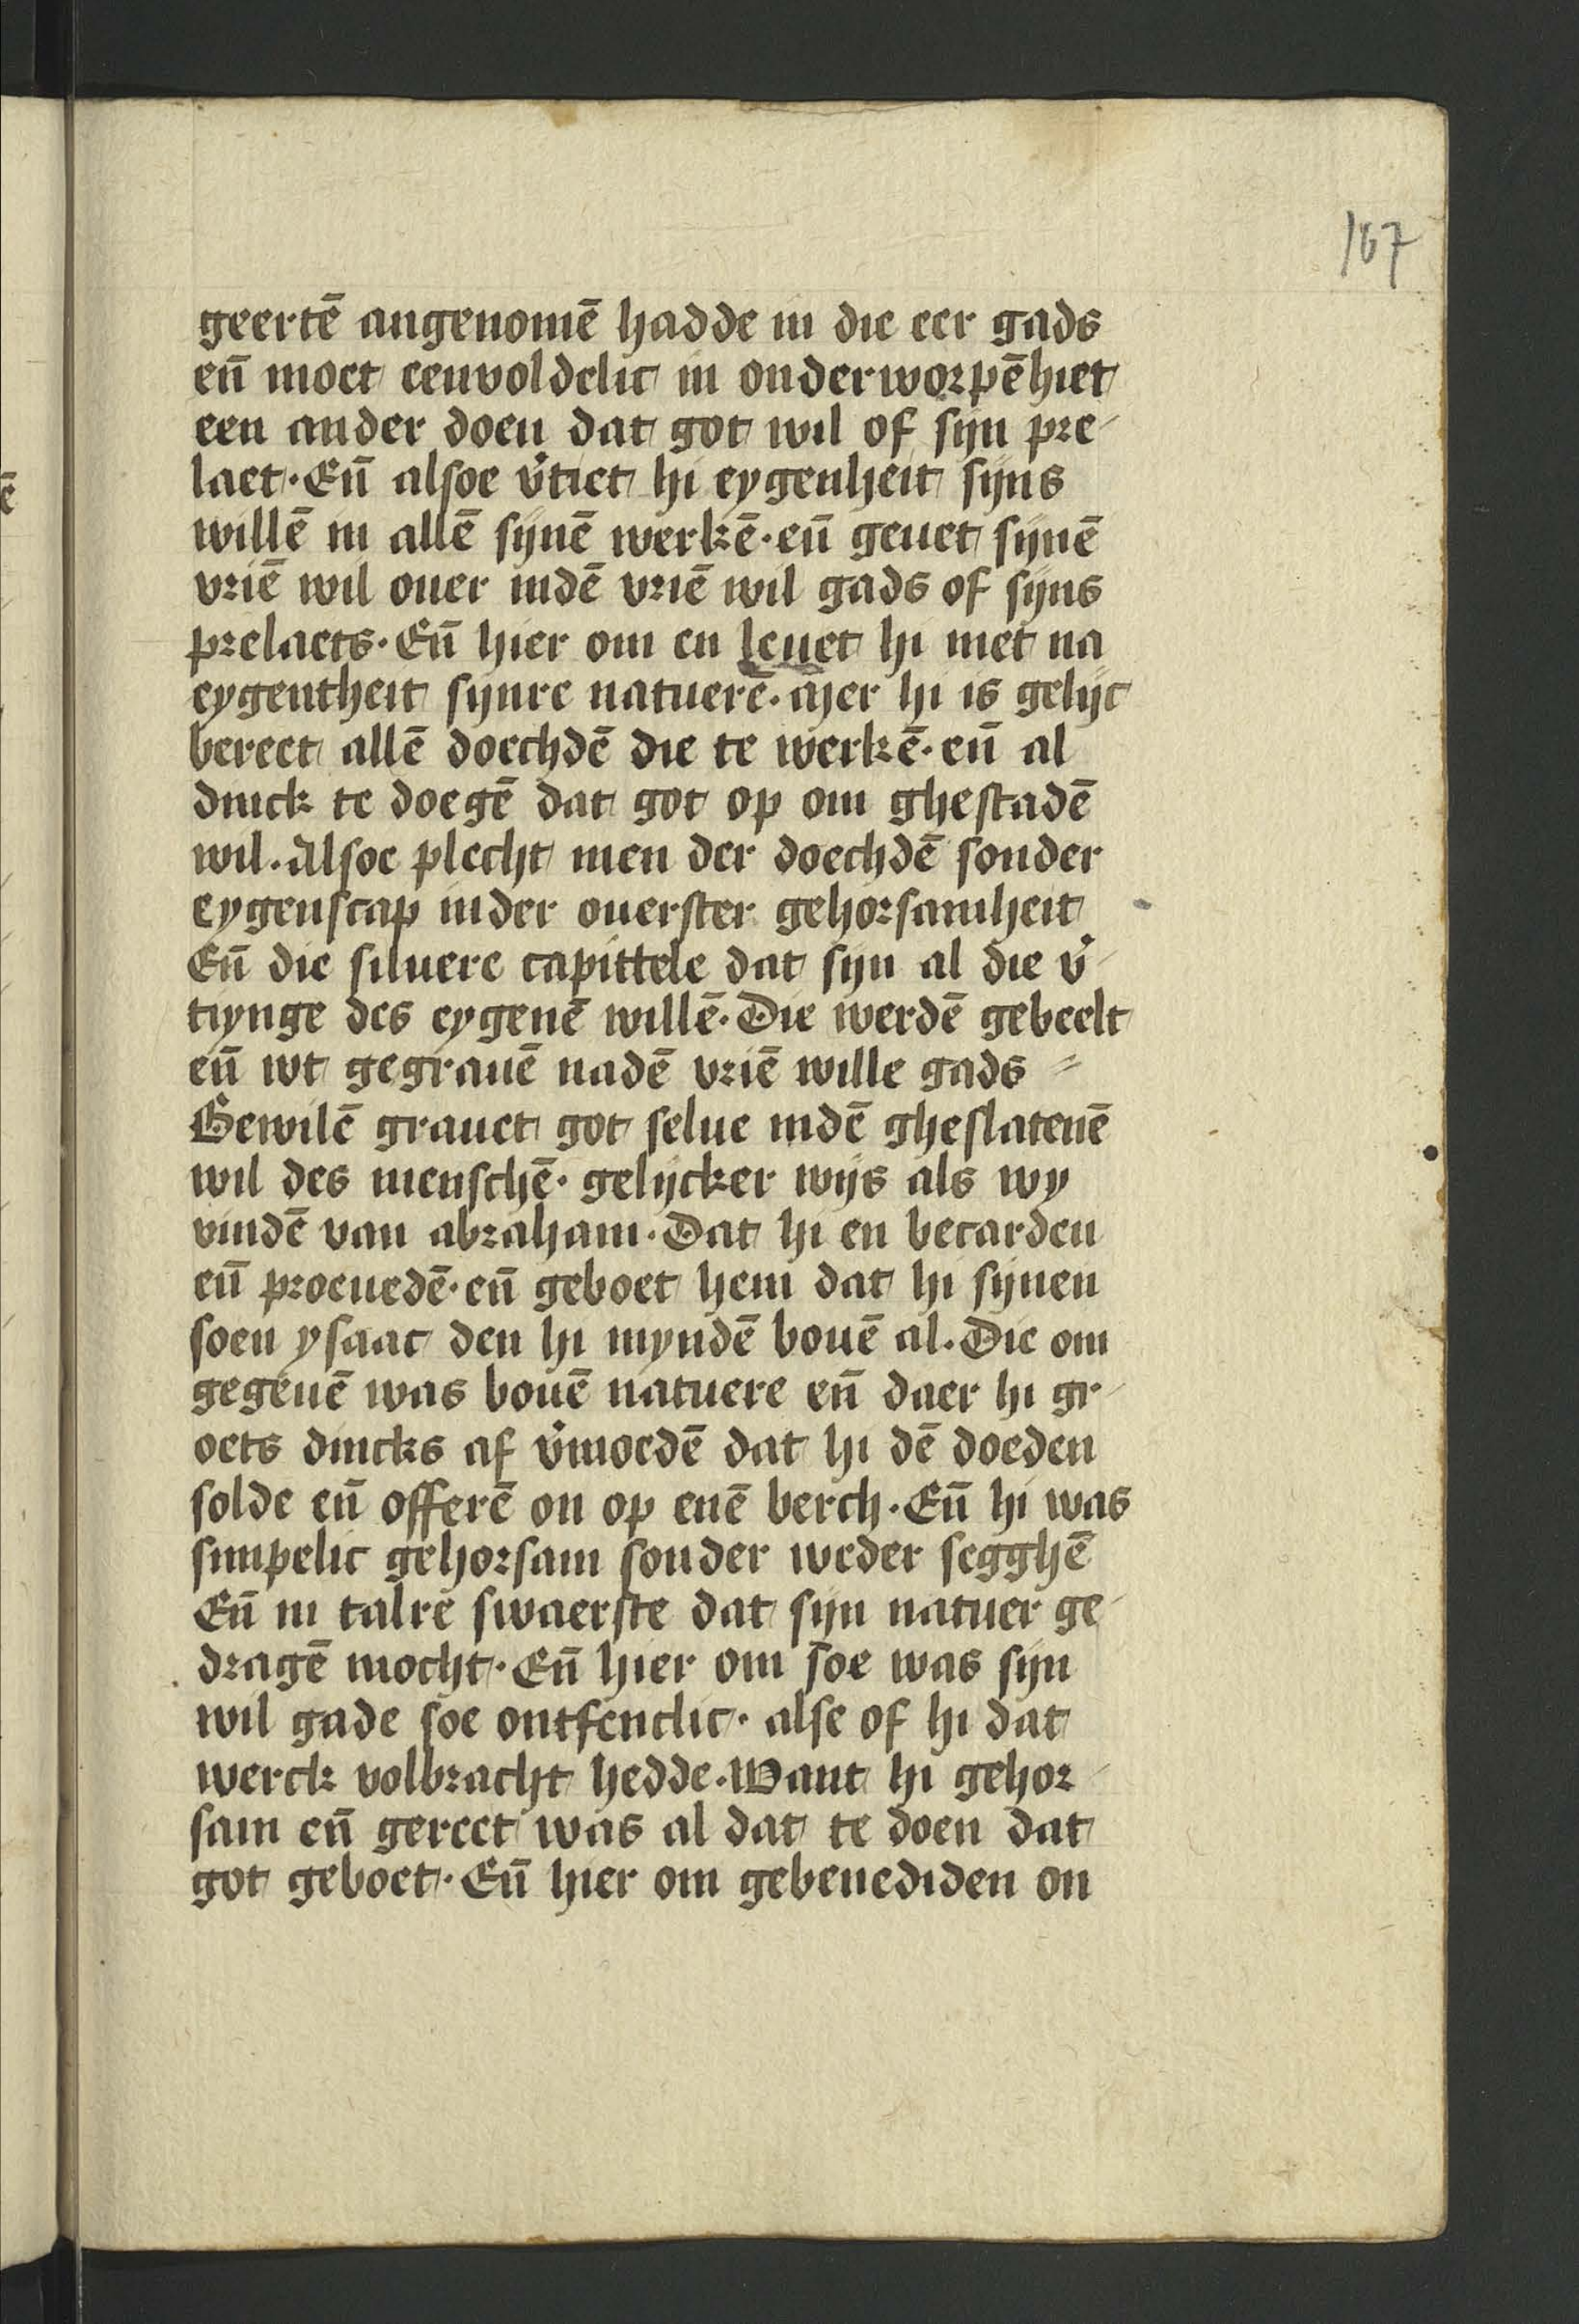 167
geertē angenomē hadde in die eer gads
eñ moet eenvoldelic in onderworpēhiet
een ander doen dat got wil of sijn pre-
laet. Eñ alsoe v̉tiet hi eygenheit sijns
willē in allē sijnē werkē. eñ geuet sijnē
vriē wil ouer indē vriē wil gads of sijns
prelaets. Eñ hier om en leuet hi niet na
eygentheit sijnre natuerē. Mer hi is gelijc
bereet allē doechdē die te werkē. eñ al
dinck te doegē dat got op om ghestadē
wil. Alsoe plecht men der doechdē sonder
eygenscap inder ouerster gehorsamheit
Eñ die siluere capittele dat sijn al die v̉-
tiynge des eygenē willē. Die werdē gebeelt
eñ wt gegrauē nadē vriē wille gads
Bewilē grauet got selue indē gheslatenē
wil des menschē. gelijcker wijs als wy
vindē van abraham. Dat hi en becarden
eñ proeuedē. eñ geboet hem dat hi sijnen
soen ysaac den hi myndē bouē al. Die om
gegeuē was bouē natuere eñ daer hi gr-
oets dincks af v̉moedē dat hi dē doeden
solde eñ offerē on op enē berch. Eñ hi was
simpelic gehorsam sonder weder segghē
Eñ in talre swaerste dat sijn natuer ge-
dragē mocht. Eñ hier om soe was sijn
wil gade soe ontfenclic. alse of hi dat
werck volbracht hedde. Want hi gehor-
sam eñ gereet was al dat te doen dat
got geboet. Eñ hier om gebenediden on